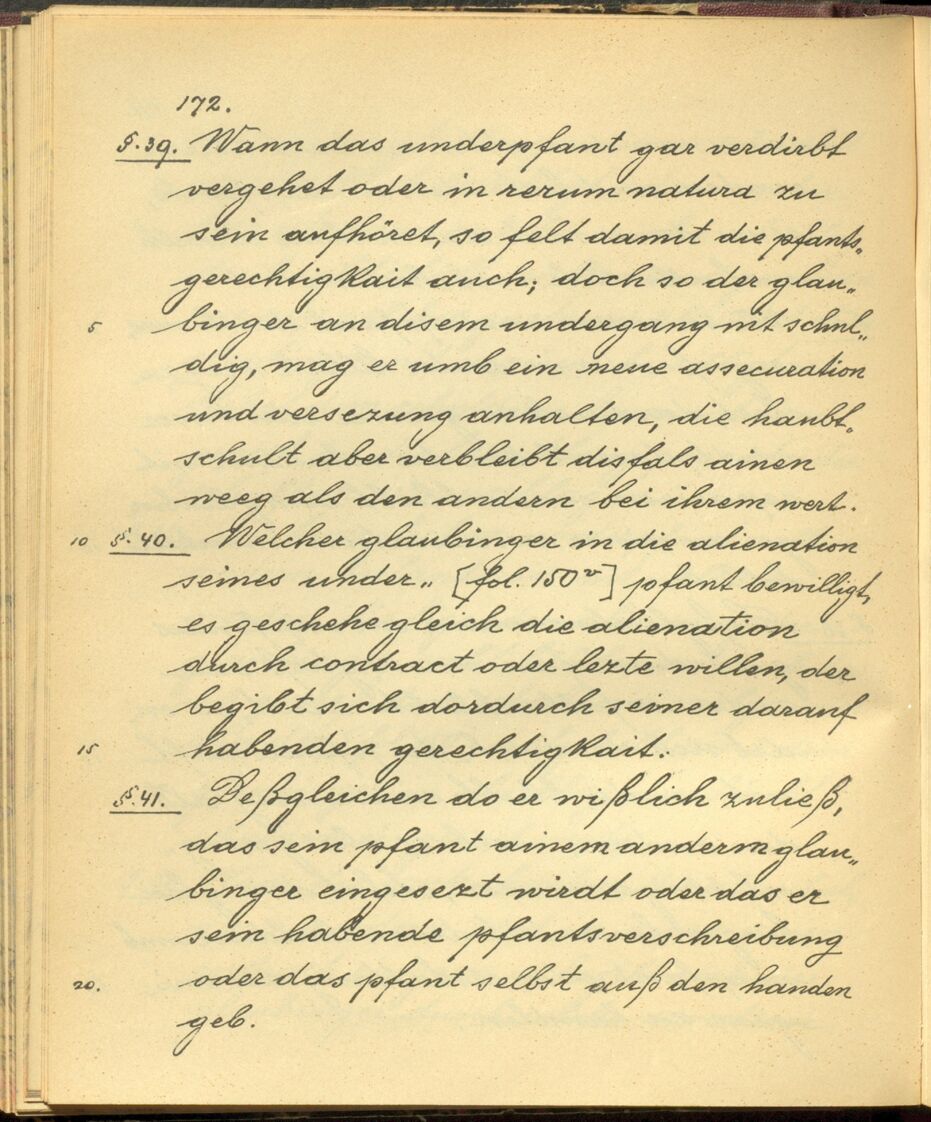 172.
§. 39. Wann das underpfant gar verdirbt
vergehet oder in rerum natura zu
sein aufhöret, so felt damit die pfants„
gerechtigkait auch; doch so der glau„
5 binger an disem undergang nit schul„
dig, mag er umb ein neue assecuration
und versezung anhalten, die haubt„
schult aber verbleibt disfals ainen
weeg als den andern bei ihrem wert.
10 §. 40. Welcher glaubinger in die alienation
seines under„ [fol. 150v] pfant bewilligt,
es geschehe gleich die alienation
durch contract oder lezte willen, der
begibt sich dordurch seiner darauf
15 habenden gerechtigkait.
§. 41. Deßgleichen do er wißlich zuließ,
das sein pfant ainem anderm glau„
binger eingesezt wirdt oder das er
sein habende pfantsverschreibung
20. oder das pfant selbst auß den handen
geb.